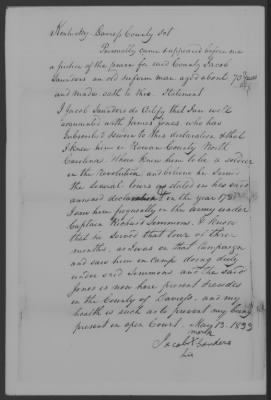 Kentucky Daviess County Sct
Personally came & appeared before me
a justice of the peace for said County Jacob
Saunders and old infirm man aged about 70 years
and made oath to this Statement
I Jacob Saunders do Certify that I am well
acquainted with James Jones who has
Subscribed & sworn to this declaration & that
I knew him in Rowan County North
Carolina & knew him to be a soldier
in the Revolution and believe he served
the several tours as stated in his said
annexed declaration in the year 178
I saw him frequently in the army under
Captain Richard Simmons & know
that he served that tour of three
months, as I was on that Campaign
and saw him in Camp doing duty
under said Simmons and the said
Jones is now here present & resides
in the County of Daviess, and my
health is such as to prevent my being
present in open Court. May 13. 1833
mark
Jacob X Sanders
his